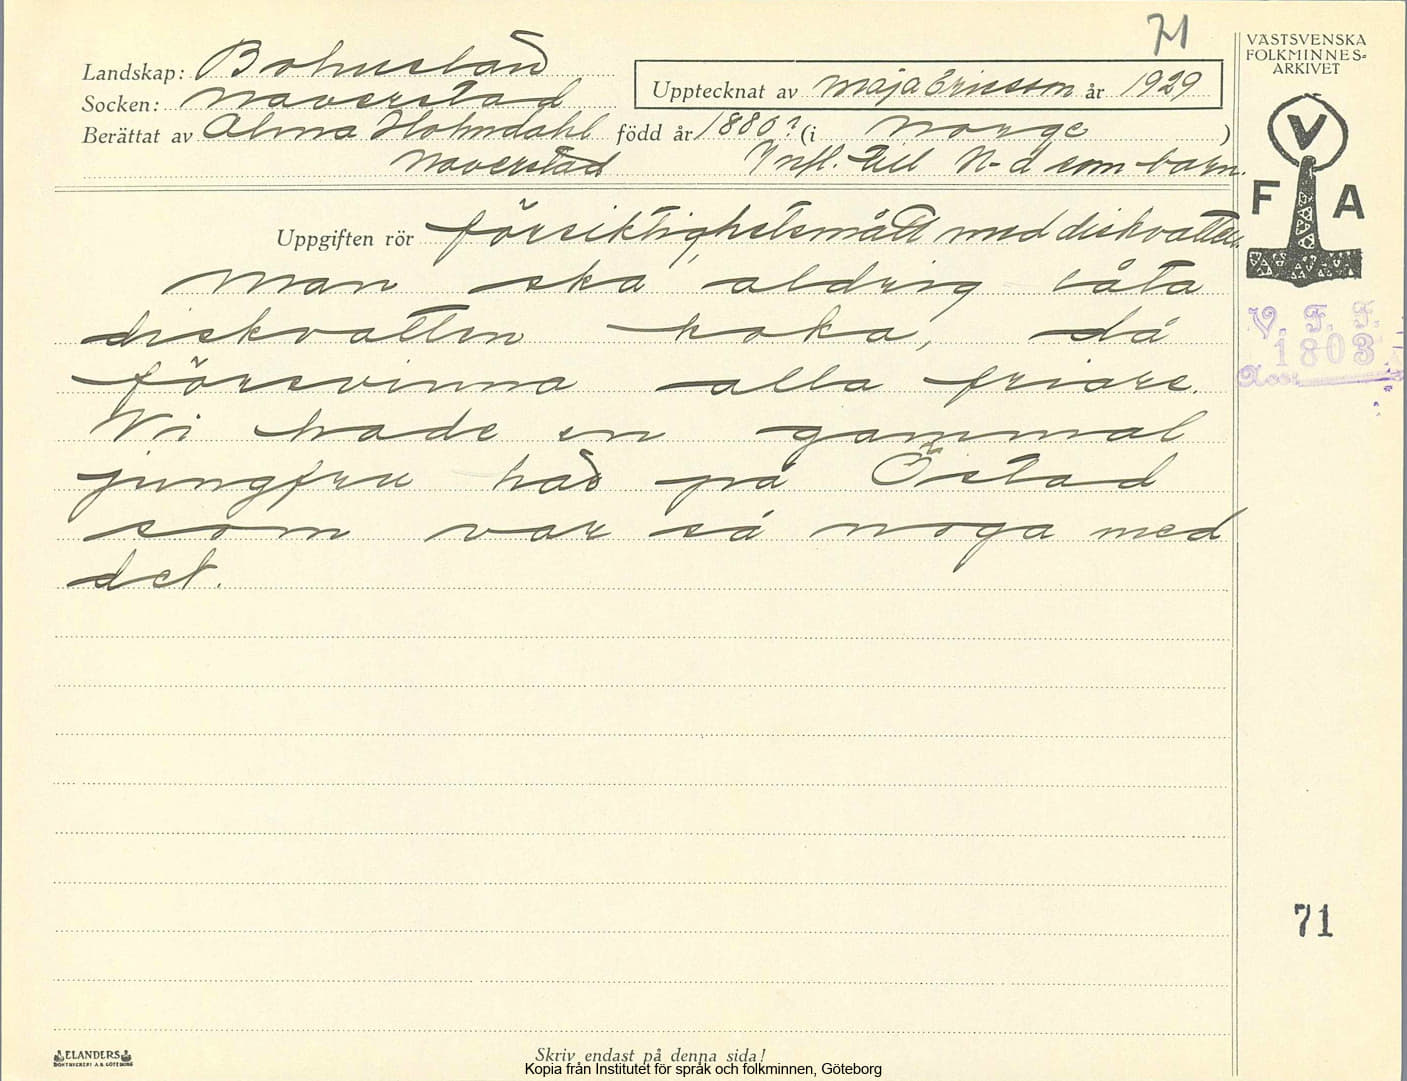 71
VÄSTSVENSKA
FOLKMINNES=
ARKIVET
Landskap: Bohuslän
Socken: Naverstad
Upptecknat av Maja Ericsson år 1929
Berättat av Alma Holmdahl född år 1880? (i Norge )
Naverstad Infl. till N-d som barn.
V
F A
Uppgiften rör försiktighetsmått med diskvatten.
Man ska aldrig låta
diskvatten koka, då
försvinna alla friare.
Vi hade en gammal
jungfru här på Östad
som var så noga med
det.
V. F. F.
1803
71
ELANDERS
BOKTRYCKERI A.B. GÖTEBORG
Skriv endast på denna sida!
Kopia från Institutet för språk och folkminnen, Göteborg